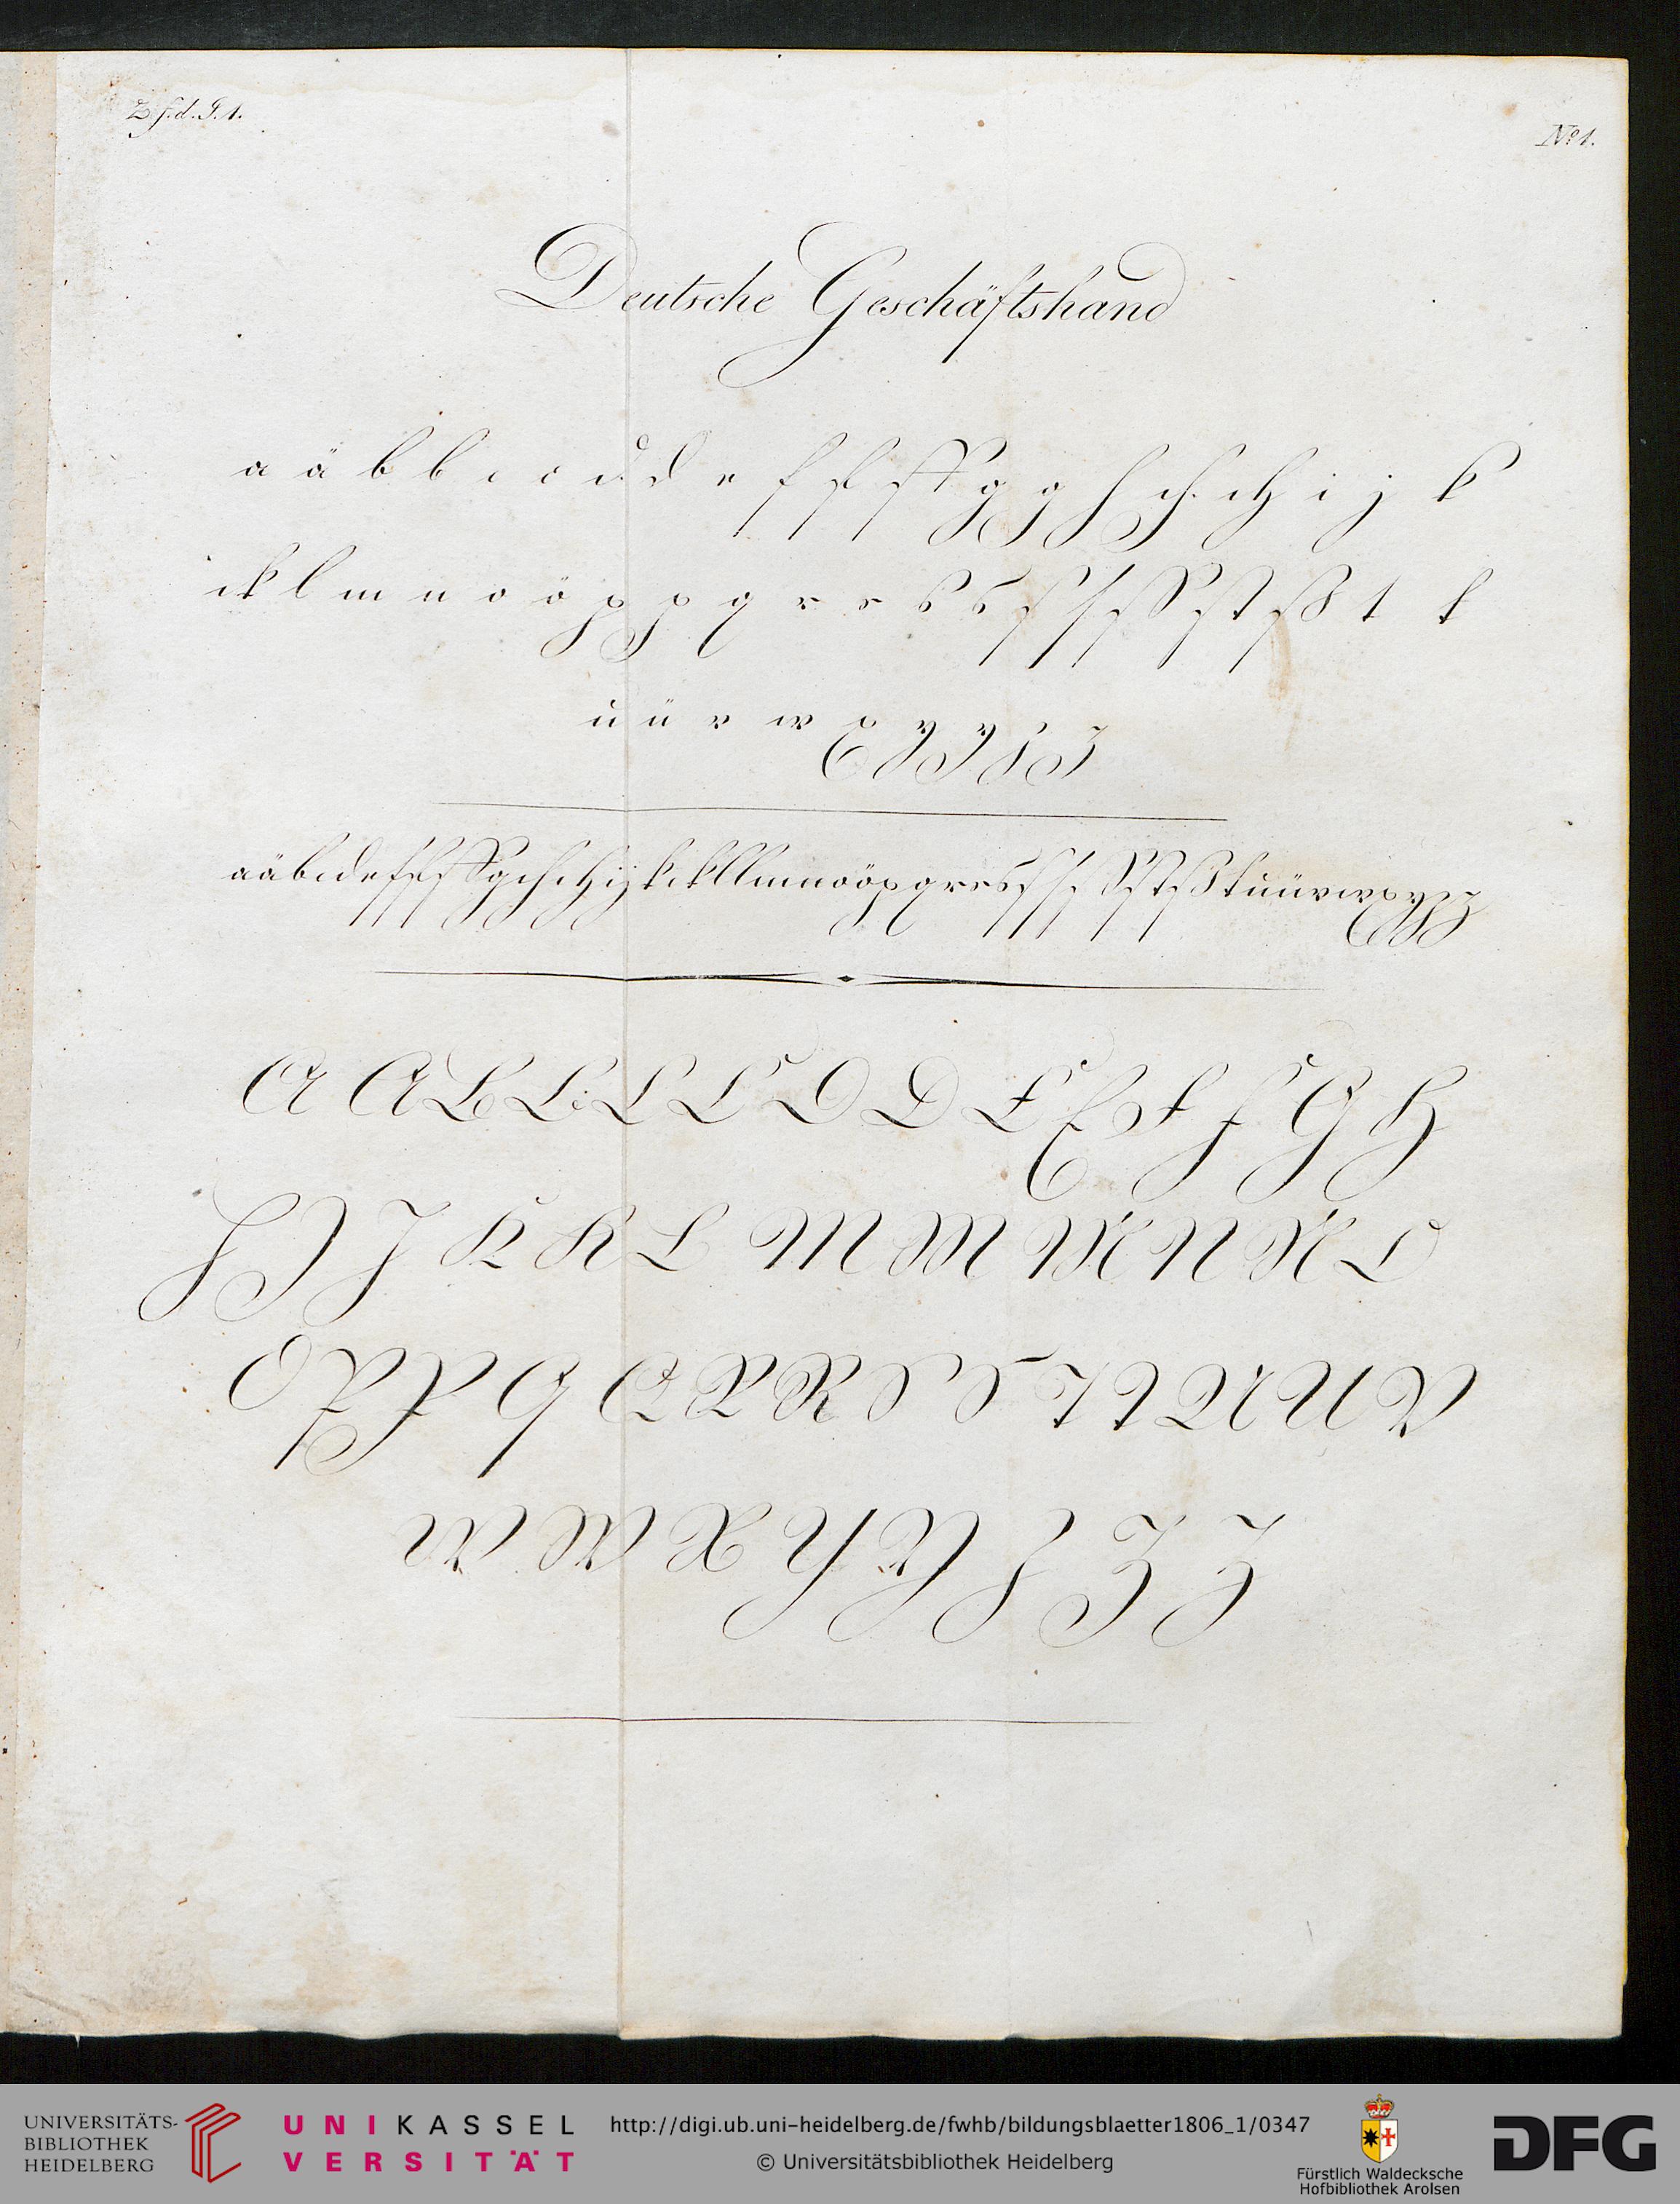 Z.f.d.J.1.
No 1.
Deutsche Geschäftshand
a ä b b c c d d e f f ff g g h ch ch i j k
ck l m n o ö p p q r r s s ſ ſ ſſ ſt ß t t
u ü v w x y y z z
A A B B C C D D E E F F G H
H J J K K L M M M N N O
O P P Q Q R R S S T T U U V
W W X Y Y Z Z Z
UNIVERSITÄTS-
BIBLIOTHEK
HEIDELBERG
UNIKASSEL
VERSITÄT
http://digi.ub.uni-heidelberg.de/fwhb/bildungsblaetter1806_1/0347
© Universitätsbibliothek Heidelberg
Fürstlich Waldecksche
Hofbibliothek Arolsen
DFG